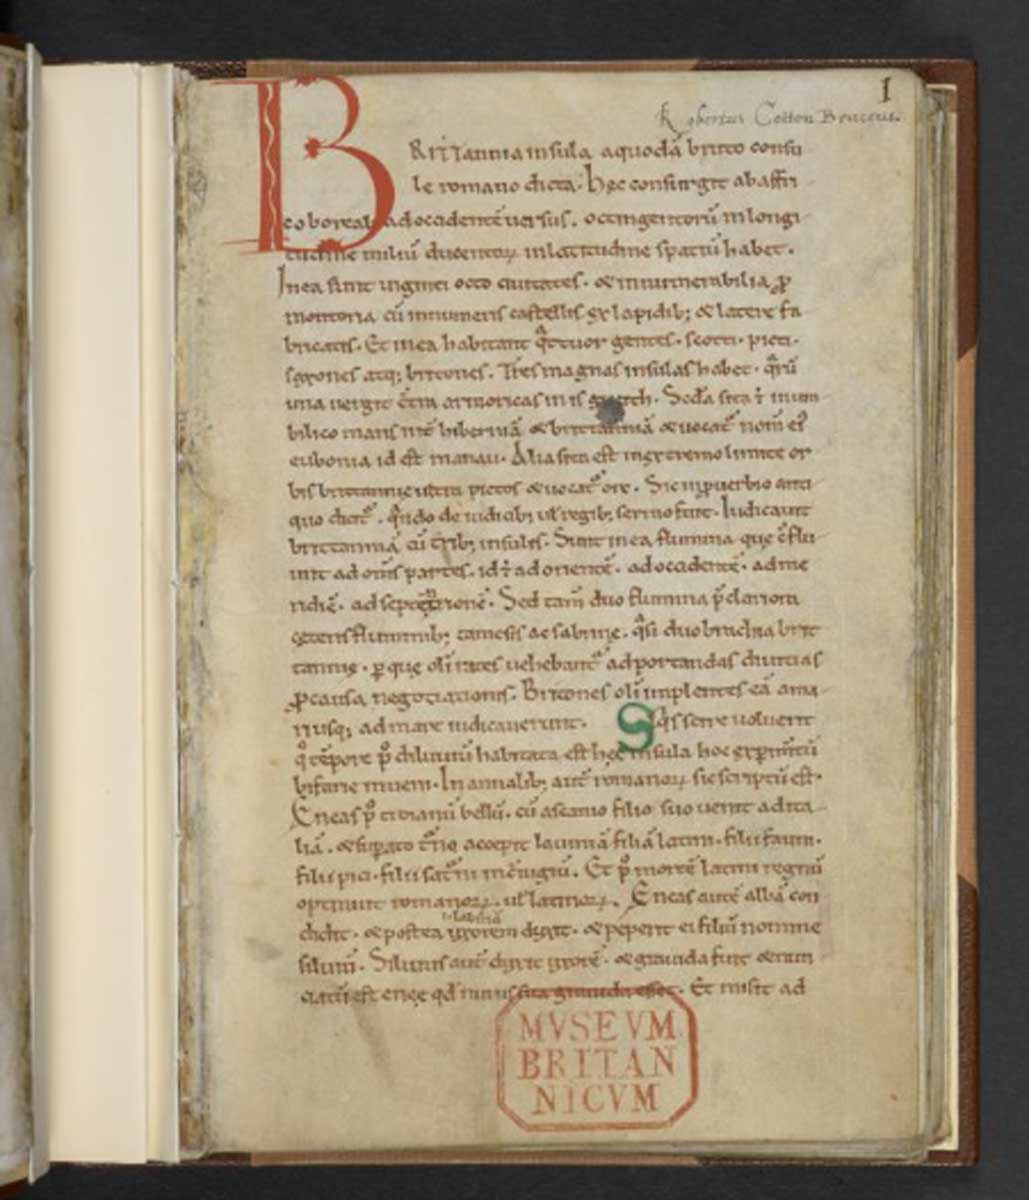 1
Robertus Cotton Bruceus.
BRITTannia insula a quodā britto consu
le romano dicta. Hęc consurgit ab affri
co boreali ad occidentē uersus. octingentorū in longi
tudine miliū ducentoꝝ in latitudine spatiū habet.
In ea sunt uiginti octo ciuitates. & innumerabilia ꝓ
montoria cū innumeris castellis ex lapidib; & latere fa
bricatis. Et in ea habitant qͣttuor gentes. scotti. picti.
saxones atq; brittones. Tres magnas insulas habet. qͣrū
una uergit cͭra armoricas in is gueith. Scd̄a sita ē in um
bilico maris int̄ hiberniā & brittanniā & uocat᷑ nom̄ ei᷒
eubonia id est manau. Alia sita est in extremo limite or
bis brittannię ultra pictos & uocat᷑ orc. Sic in ꝓuerbio anti
quo dicit᷑. qͣndo de iudicib; ul̄ regib; sermo fuit. Iudicauit
brittanniā cū trib; insulis. Sunt in ea flumina que cͨflu
unt ad om̄s partes. id ē ad orientē. ad occidentē. ad me
ridiē. ad septētrionē. Sed tam̄ duo flumina p̄clariora
cęteris fluminib; tamesis ac sabrinę. qͣsi duo brachia brit
tannię. ꝑ que olī rates uehebant᷑ ad portandas diuitias
ꝓ causa negociationis. Brittones olī implentes eā a ma
ri usq; ad mare iudicauerunt. Sı q̇s scire uoluerit
qͦ tēpore p᷒ diluuiū habitata est hęc insula hoc expim̄tū
bifarie inueni. In annalib; aut̄ romanoꝝ sic scriptū est.
Eneas p᷒ troianū bellū. cū ascanio filio suo uenit ad ita
liā. & supato turno accepit lauiniā filiā latini. filii fauni.
filii pici. filii saturni in cͨiugiū. Et p᷒ mortē latini regnū
optinuit romanoꝝ. ul̄ latinoꝝ. Eneas autē albā con
didit. & postea uxorem duxit. & peperit ei filiū nomine
siluiū. Siluius aut̄ duxit uxorē. & grauida fuit & nun
ciatū est enęę qd̄ nurus sua grauida esset. Et misit ad
MVSEVM
BRITAN
NICVM